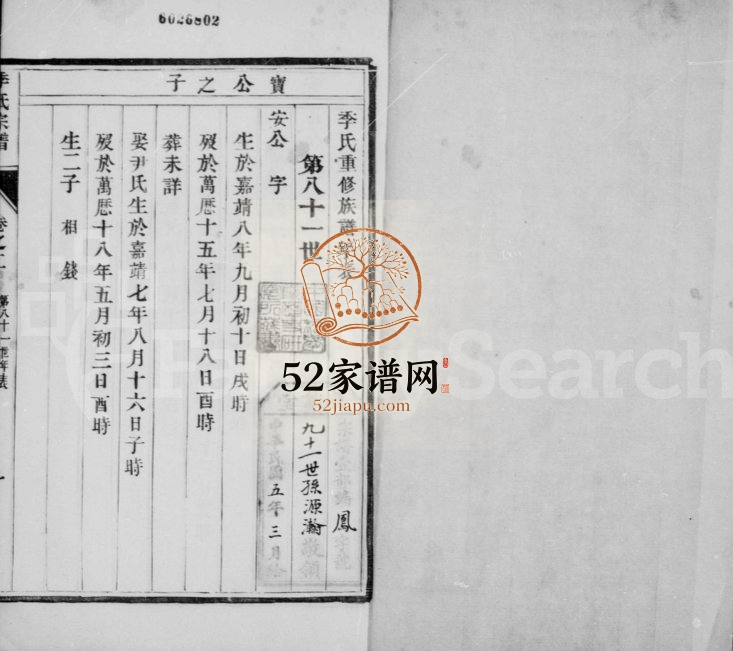 6026802
寶公之子
季氏重修族譜
第八十一世
安公字
生於嘉靖八年九月初十日戌時
歿於萬曆十五年七月十八日酉時
葬未詳
娶尹氏生於嘉靖七年八月十六日子時
歿於萬曆十八年五月初三日酉時
生二子 相 錢
季氏宗譜
卷之二
第八十一世
九十一世孫源瀚敬領
鳳
中華民國五年三月給
52家谱网
52jiapu.com
Search